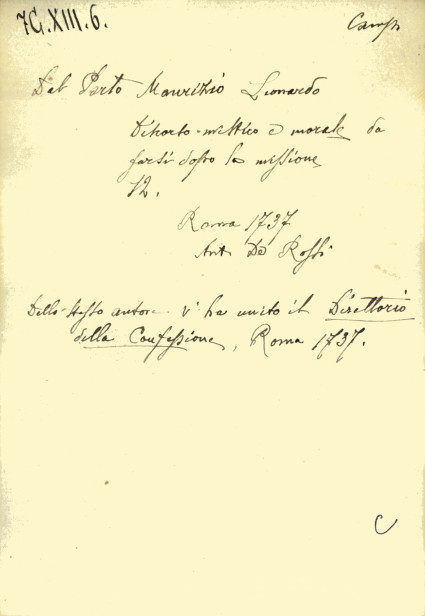 7G.XIII.6.
Camp
Dal Porto Maurizio Leonardo
Discorso mistico e morale da
farsi dopo la missione
12.
Roma 1737
Ant. De Rossi
Dello stesso autore v'ha unito il Direttorio
della Confessione, Roma 1737.
C